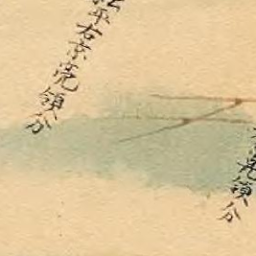 平右京亮領分
亮領分